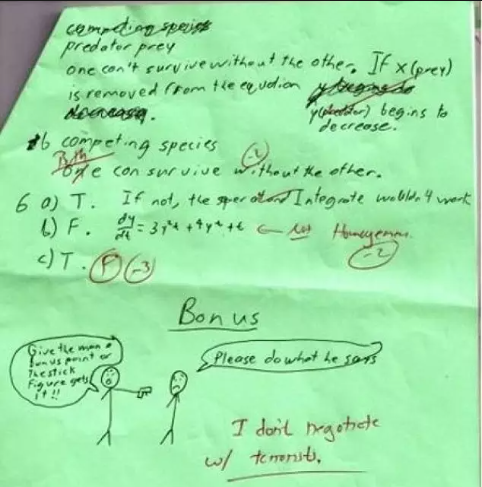 competing species
predator prey
one can't survive without the other. If x (prey)
is removed from the equation y begins to
decrease.
y(predator) begins to
decrease.
6 competing species
Both
one can survive without the other.
-2
6 a) T. If not, the Integrate wouldn't work
b) F. dy/dt = 3y²t + 4y²+t ← not Homogenous.
-2
c) T. F -3
Bonus
Give the man a
bonus point or
The stick
figure gets
it!!
Please do what he says
I don't negotiate
w/ terrorists.